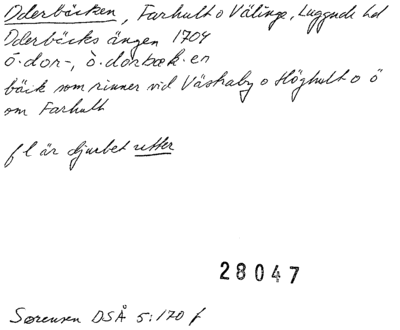 Oderbäcken, Farhult o Välinge, Luggude hd
Oderbäcks ängen 1704
ó·dor-, ò·dorbæk·en
bäck som rinner vid Väskaby o Höghult o ö
om Farhult
f l är djurbet utter
28047
Sørensen DSÅ 5:170 f